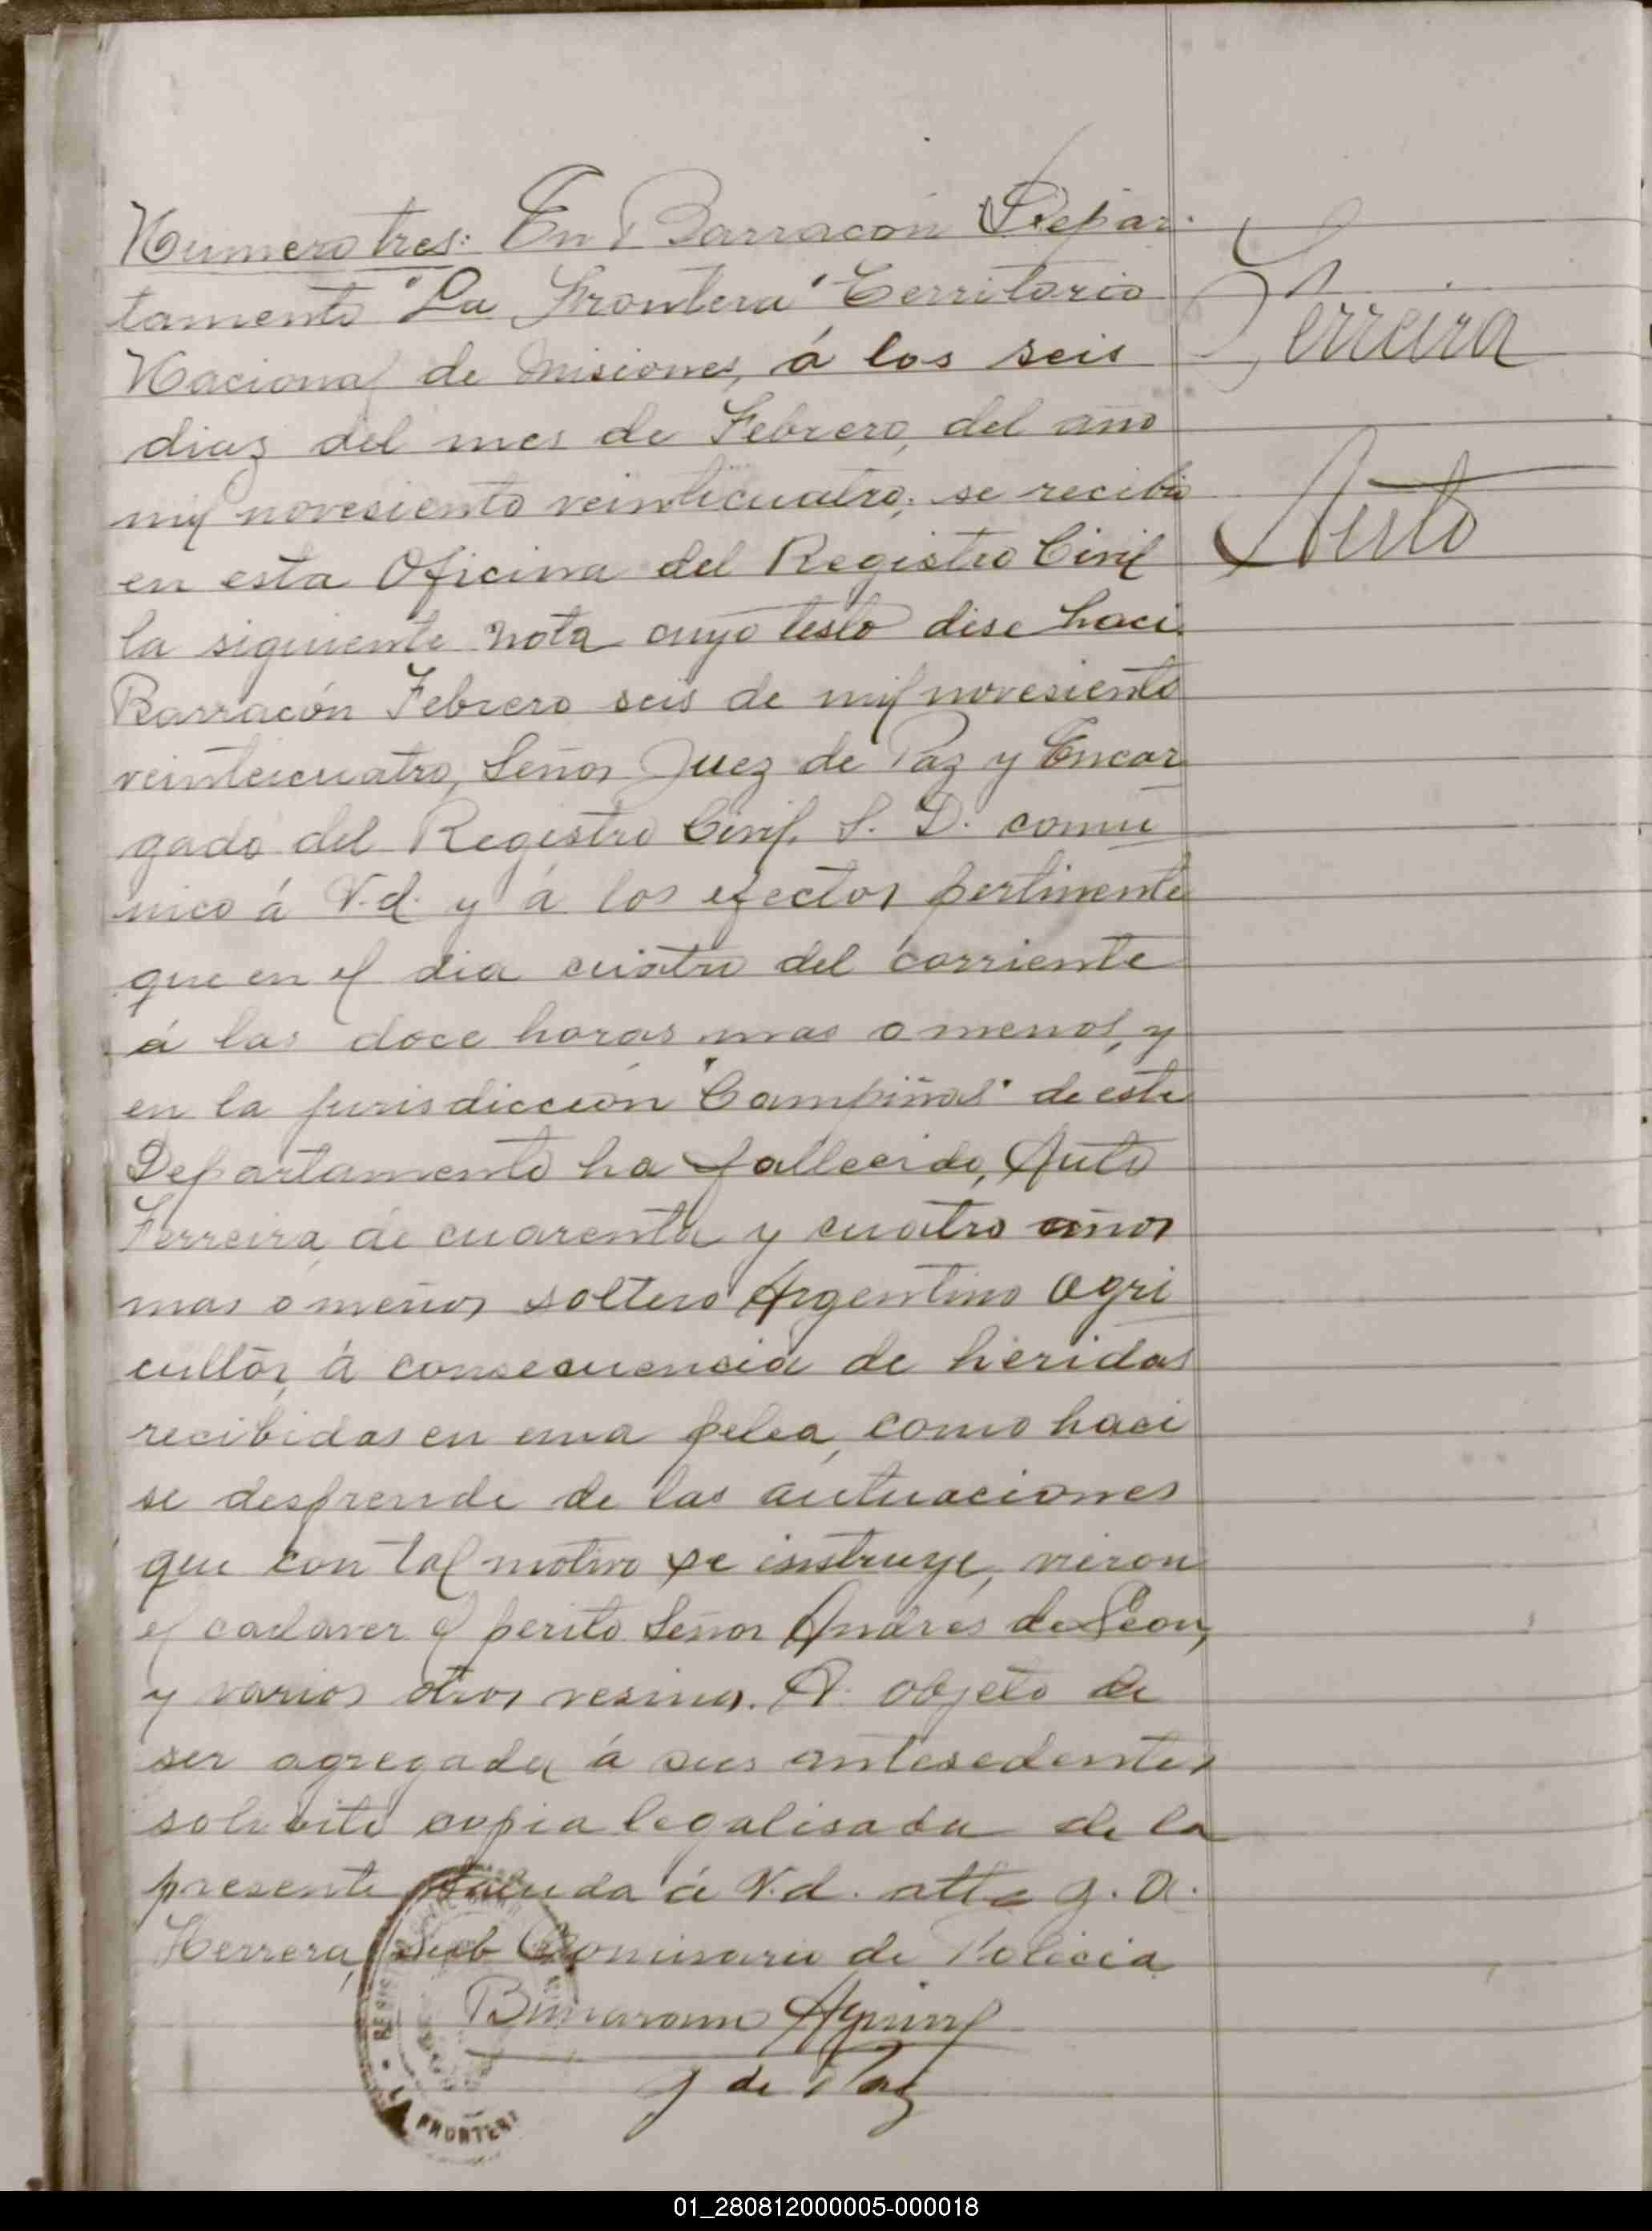 Numero tres: En Barracón Depar-
tamento "La Frontera" Territorio
Nacional de Misiones, á los seis
diaz del mes de Febrero, del año
mil novesiento veinticuatro, se recibió
en esta Oficina del Registro Civil
la siguiente nota cuyo testo dise haci
Barracón Febrero seis de mil novesiento
veinteicuatro, Señor Juez de Paz y Encar
gado del Registro Civil. S. D. comu
nico á V.d. y á los efectos pertinente
que en el dia cuatro del corriente
á las doce horas mas o menos, y
en la jurisdicción "Campiñas" de este
Departamento ha fallecido, Auto
Ferreira de cuarenta y cuatro años
mas ó menos soltero Argentino agri
cultor, á consecuencia de heridas
recibidas en una pelea, como haci
se desprende de las autuaciones
que con tal motivo se instruye, vieron
el cadaver el perito Señor Andrés de Leon,
y varios otros vesinos. A objeto de
ser agregada á sus antesedentes
solicite copia legalisada de la
presente saluda á V.d. atte g. a.
Herrera, Sub Comisario de Policia
Aguirre
J de Paz
Ferreira
Auto
LA FRONTERA
01_280812000005-000018